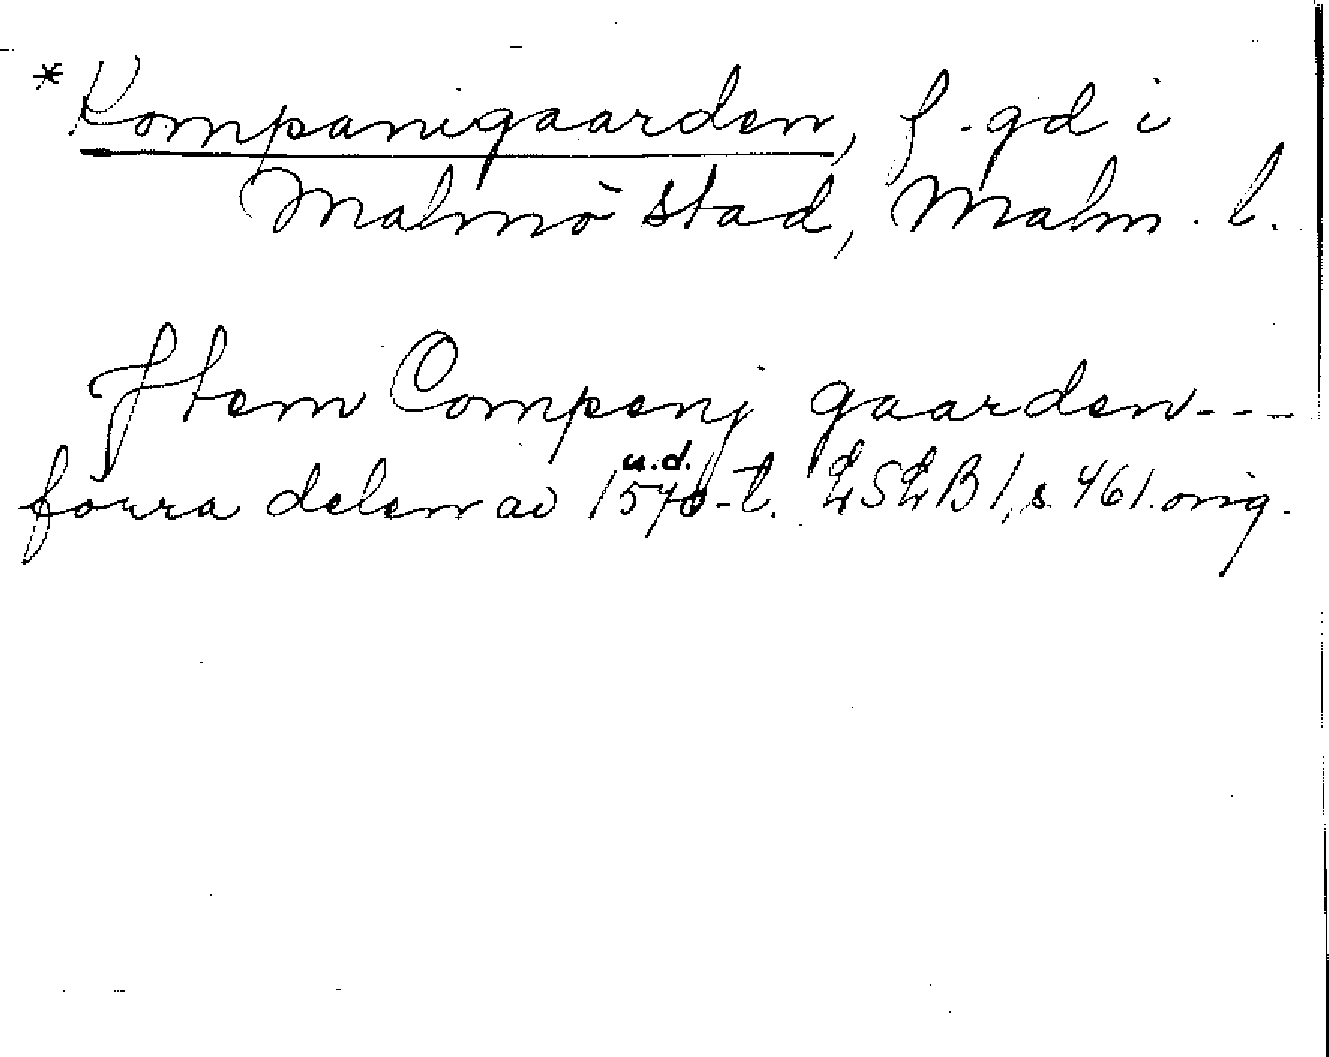 *Kompanigaarden, f. gd i
Malmö stad, Malm. l.
Jtem Compenj gaarden---
u.d.
förra delen av 1570-t. LSLB 1, s. 461. orig.